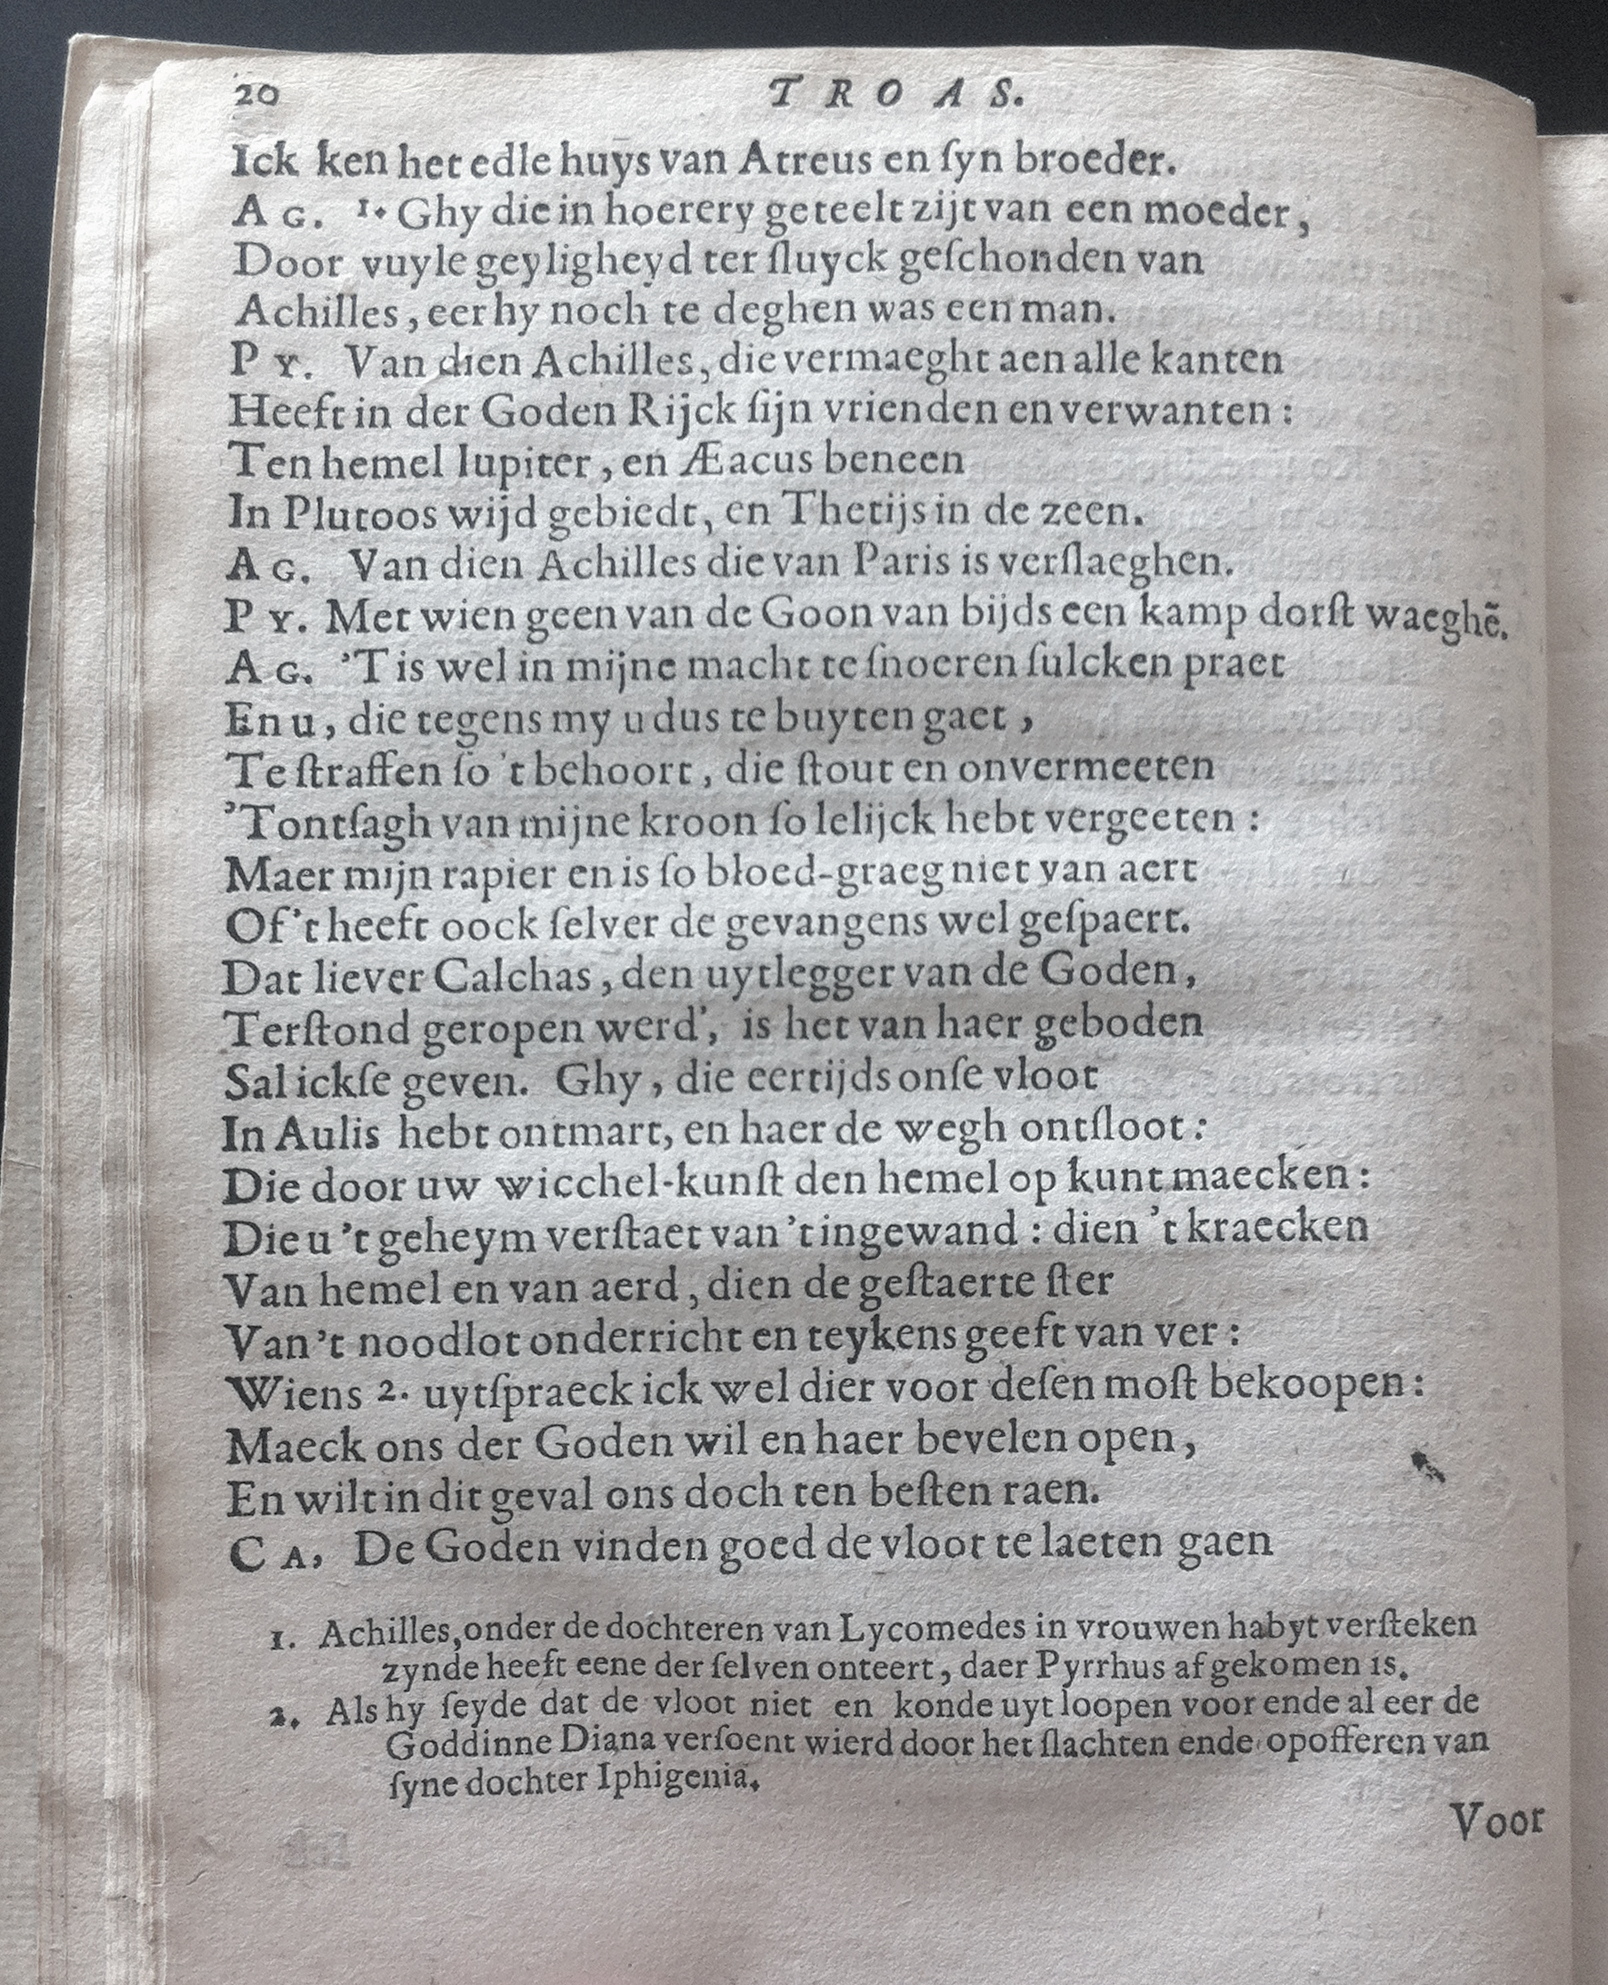 20 TROAS.
Ick ken het edle huÿs van Atreus en ſyn broeder.
AG. 1. Ghy die in hoerery geteelt zijt van een moeder,
Door vuyle geyligheyd ter ſluyck geſchonden van
Achilles, eer hy noch te deghen was een man.
PY. Van dien Achilles, die vermaeght aen alle kanten
Heeft in der Goden Rijck ſijn vrienden en verwanten:
Ten hemel Iupiter, en Æacus beneen
In Plutoos wijd gebiedt, en Thetijs in de zeen.
AG. Van dien Achilles die van Paris is verſlaeghen.
PY. Met wien geen van de Goon van bijds een kamp dorſt waeghẽ.
AG. 'T is wel in mijne macht te ſnoeren ſulcken praet
En u, die tegens my u dus te buyten gaet,
Te ſtraffen ſo 't behoort, die ſtout en onvermeeten
'Tontſagh van mijne kroon ſo lelijck hebt vergeeten:
Maer mijn rapier en is ſo bloed-graeg niet van aert
Of 't heeft oock ſelver de gevangens wel geſpaert.
Dat liever Calchas, den uytlegger van de Goden,
Terſtond geropen werd', is het van haer geboden
Sal ickſe geven. Ghy, die eertijds onſe vloot
In Aulis hebt ontmart, en haer de wegh ontſloot:
Die door uw wicchel-kunſt den hemel op kunt maecken:
Die u 't geheym verſtaet van 't ingewand: dien 't kraecken
Van hemel en van aerd, dien de geſtaerte ſter
Van 't noodlot onderricht en teykens geeft van ver:
Wiens 2. uytſpraeck ick wel dier voor deſen moſt bekoopen:
Maeck ons der Goden wil en haer bevelen open,
En wilt in dit geval ons doch ten beſten raen.
CA, De Goden vinden goed de vloot te laeten gaen
1. Achilles, onder de dochteren van Lycomedes in vrouwen habyt verſteken
zynde heeft eene der ſelven onteert, daer Pyrrhus af gekomen is.
2. Als hy ſeyde dat de vloot niet en konde uyt loopen voor ende al eer de
Goddinne Diana verſoent wierd door het ſlachten ende opofferen van
ſyne dochter Iphigenia.
Voor